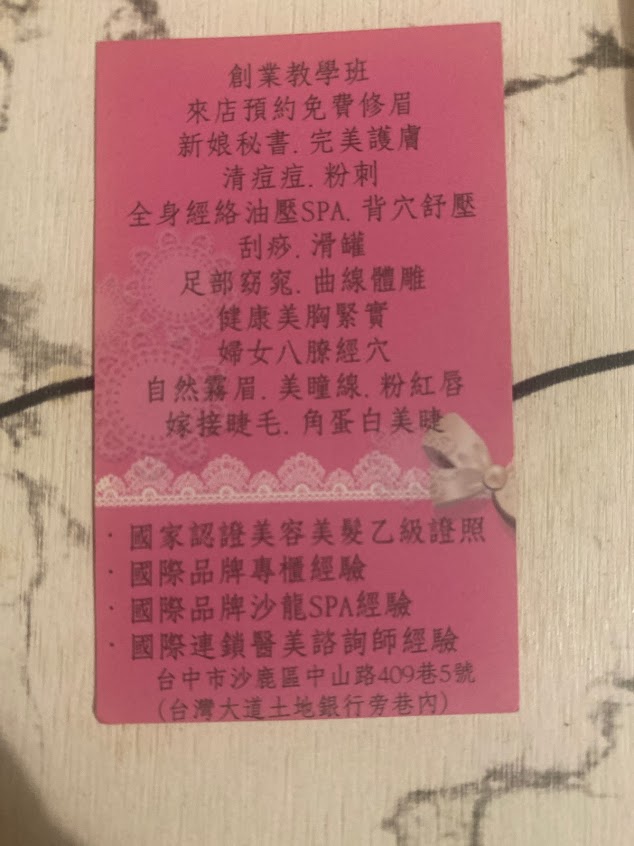 創業教學班
來店預約免費修眉
新娘秘書.完美護膚
清痘痘.粉刺
全身經絡油壓SPA.背穴舒壓
刮痧.滑罐
足部窈窕.曲線體雕
健康美胸緊實
婦女八髎經穴
自然霧眉.美瞳線.粉紅唇
嫁接睫毛.角蛋白美睫
·國家認證美容美髮乙級證照
·國際品牌專櫃經驗
·國際品牌沙龍SPA經驗
·國際連鎖醫美諮詢師經驗
台中市沙鹿區中山路409巷5號
(台灣大道土地銀行旁巷內)